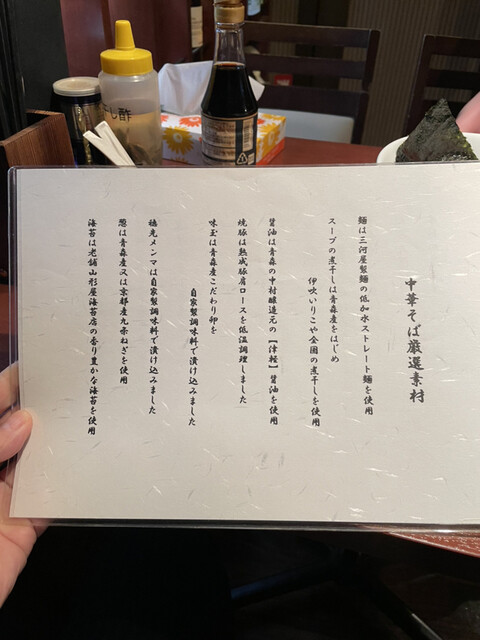 中華そば厳選素材
麺は三河屋製麺の低加水ストレート麺を使用
スープの煮干しは青森産をはじめ
伊吹いりこや全国の煮干しを使用
醤油は青森の中村醸造元の【津軽】醤油を使用
焼豚は熟成豚肩ロースを低温調理しました
味玉は青森産こだわり卵を
自家製調味料で漬け込みました
穂先メンマは自家製調味料で漬け込みました
葱は青森産又は京都産九条ねぎを使用
海苔は老舗山形屋海苔店の香り豊かな海苔を使用
干し酢